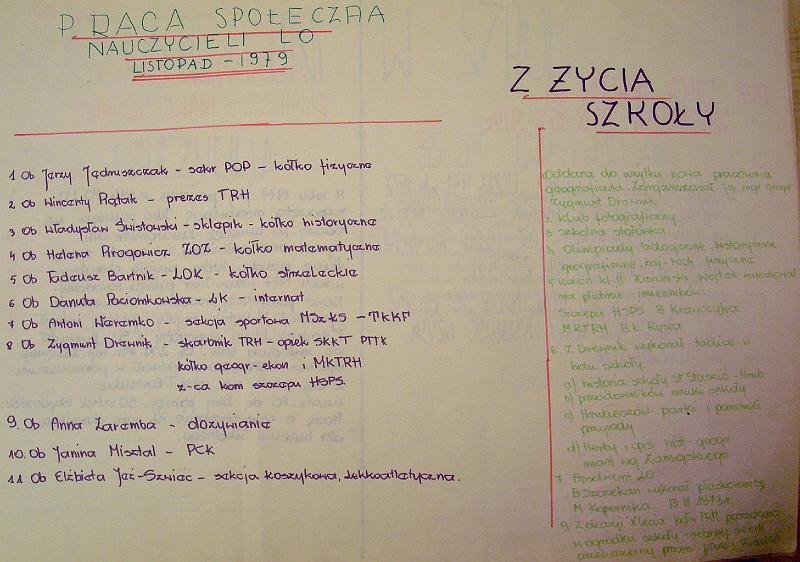 PRACA SPOŁECZNA
NAUCZYCIELI LO
LISTOPAD - 1979
1 Ob Jerzy Jędruszczak - sekr POP - kółko fizyczne
2 Ob Wincenty Piątak - prezes TRH
3 Ob Władysław Świstowski - sklepik - kółko historyczne
4 Ob Helena Pirogowicz ZOZ - kółko matematyczne
5 Ob Tadeusz Bartnik - LOK - kółko strzeleckie
6 Ob Danuta Poziomkowska - LK - internat
7 Ob Antoni Waremko - sekcja sportowa MSzKS - TKKF
8 Ob Zygmunt Drewnik - skarbnik TRH - opiek SKKT PTTK
kółko geogr - ekon i MKTRH
z-ca kom szczepu HSPS.
9. Ob Anna Zaremba - dożywianie
10. Ob Janina Misztal - PCK
11 Ob Elżbieta Jeż-Szwiec - sekcja koszykowa, lekkoatletyczna.
Z ŻYCIA
SZKOŁY
Oddana do użytku nowa pracownia
geograficzna. Zorganizował ją mgr geogr
Zygmunt Drewnik
2 Klub fotograficzny
3 Szkolna stołówka
4. Olimpiady biologiczne, historyczne
geograficzne, zaj-tech, fizyczne
5 uczeń kl. II Zaremska Wojtek namalował
na płótnie imienników.
Szczepu HSPS B Krawczyka
MKTRH B.K. Rysia
6. Z Drewnik wykonał tablice w
holu szkoły.
a) historia szkoły St Staszic - Hrub
b) przodowników nauki szkoły
c) Hrubieszów - parki i pomniki
przyrody
d) Herby i opis hist - geogr
miast woj Zamojskiego
7. Absolwent LO
B Szczekan wykonał płaskorzeźbę
M Kopernika 13 III 1973 r.
9 Z okazji X lecia koła TRH posadzono
w ogródku szkoły srebrny świerk
przekazany przez panią